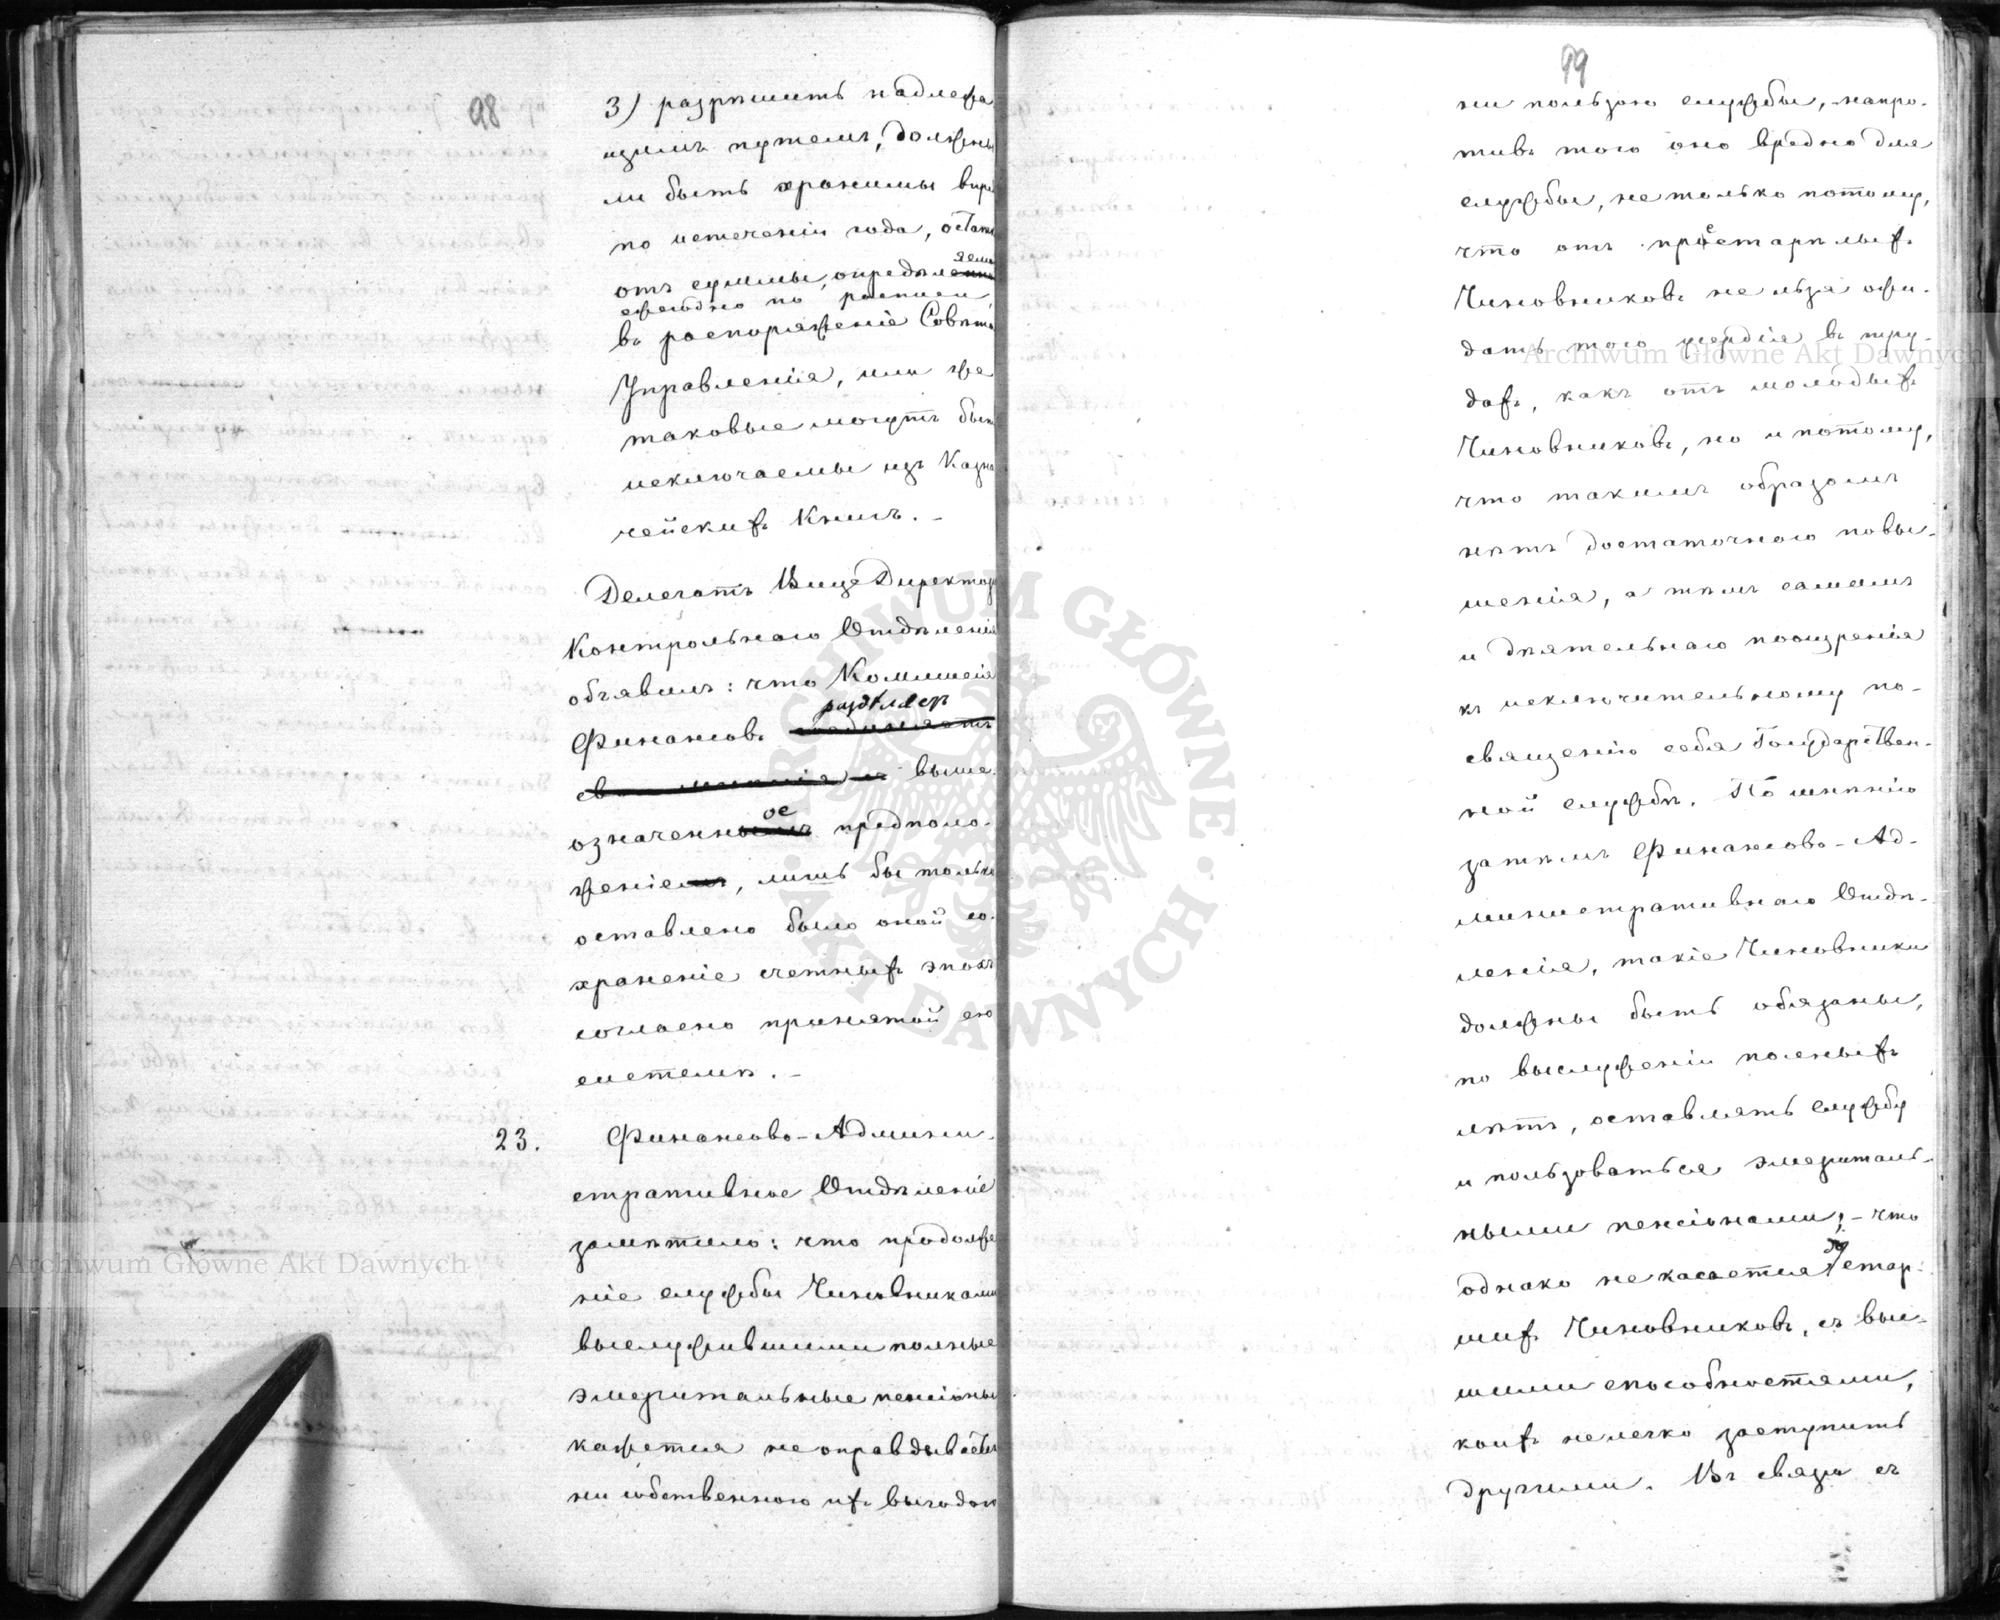 98
3) разрѣшить надлежа
щимъ путемъ, должны
ли быть хранимы впредь
по истеченіи года, остатки
отъ суммы, опредѣляемой
ежегодно по росписи,
въ распоряженіе Совѣта
Управленія, или же
таковые могутъ быть
исключаемы изъ Казна
чейскихъ Книгъ. –
Делегатъ Вице Директоръ
Контрольнаго Отдѣленія
объявилъ: что Коммисія
Финансовъ раздѣляетъ
выше
означенное предполо-
женіе, лишь бы только
оставлено было оной со-
храненіе счетныхъ эпохъ
согласно принятой ею
системѣ. –
23. Финансово-Админи-
стративное Отдѣленіе
замѣтило: что продолже
ніе службы Чиновниками
выслужившими полные
эмеритальные пенсіоны
кажется не оправдывается
ни собственною ихъ выгодою
99
ни пользою службы, напро-
тивъ того оно вредно для
службы, не только потому,
что отъ престарѣлыхъ
Чиновниковъ нельзя ожи-
дать того усердія въ тру-
дахъ, какъ отъ молодыхъ
Чиновниковъ, но и потому,
что такимъ образомъ
нѣтъ достаточнаго повы-
шенія, а тѣмъ самымъ
и дѣятельнаго поощренія
къ исключительному по-
священію себя Государствен-
ной службѣ. По мнѣнію
затѣмъ Финансово-Ад-
министративнаго Отдѣ-
ленія, такіе Чиновники
должны быть обязаны,
по выслуженіи полныхъ
лѣтъ, оставлять службу
и пользоваться эмериталь-
ными пенсіонами; – что
однако не касается стар-
шихъ Чиновниковъ, съ выс-
шими способностями,
коихъ не легко заступить
другими. Въ связи съ
Archiwum Główne Akt Dawnych
Archiwum Główne Akt Dawnych
ARCHIWUM GŁÓWNE
AKT DAWNYCH